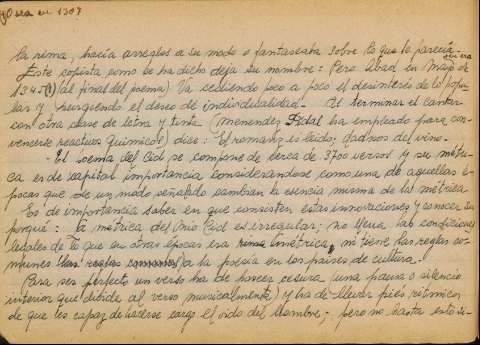 (1) O sea en 1307
la rima, hacía arreglos a su modo o fantaseaba sobre lo que le parecía.
Este copista como se ha dicho deja su nombre: Pero Abad en Mayo de
1345 (1) (al final del poema) Va cediendo poco a poco el desinterés de lo popu-
lar y surgiendo el deseo de individualidad. Al terminar el cantar
con otra clase de letra y tinta (Menendez Pidal ha empleado para con-
vencerse reactivos químicos) dice: El roman es leído, dadnos del vino.
- El poema del Cid se compone de cerca de 3700 versos y su métri-
ca es de capital importancia considerandose como una de aquellas é-
pocas que de un modo señalado cambian la esencia misma de la métrica
Es de importancia saber en que consisten estas innovaciones y conocer su
porqué: la métrica del Mio Cid es irregular; no llena las condiciones
legales de lo que en otras épocas era métrica, ni tiene las reglas co-
munes a la poesía en los países de cultura.
Para ser perfecto un verso ha de poseer cesura (una pausa o silencio
interior que divide al verso musicalmente) y ha de llevar piés ritmicos
de que es capaz de hacerse cargo el oido del hombre; pero no basta esto si-